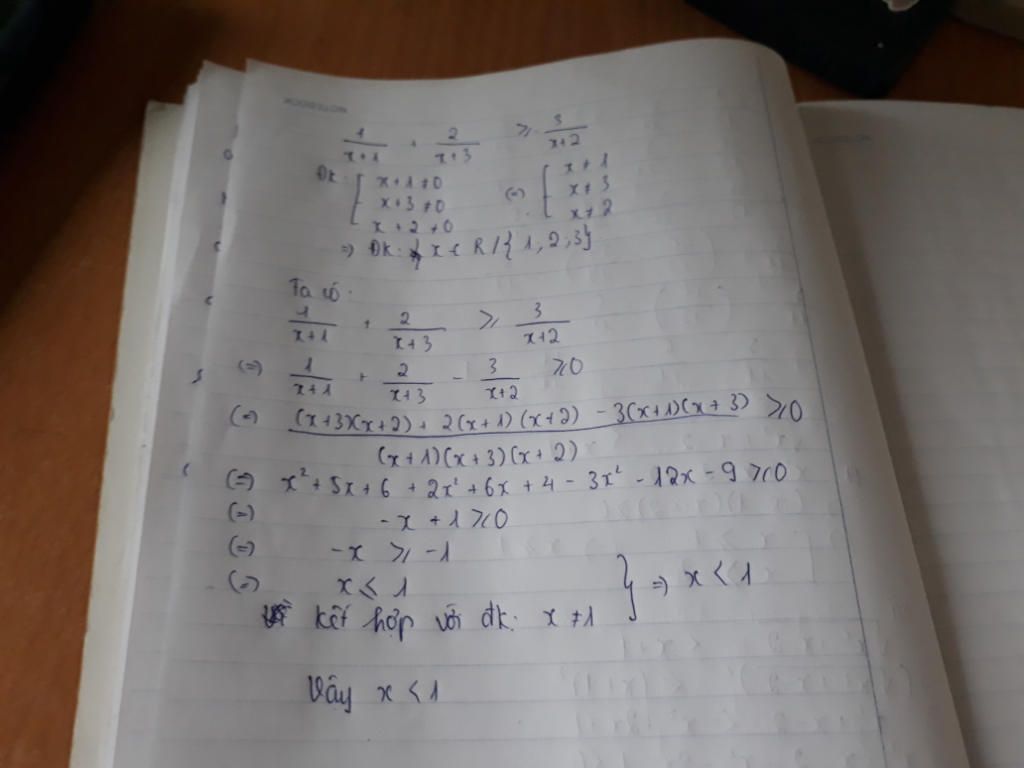 NOTEBOOK
1/(x+1) + 2/(x+3) ≥ 3/(x+2)
Đk: { x+1≠0 (=) { x≠1
x+3≠0 x≠3
x+2≠0 x≠2
=> Đk: x ∈ R / {1,2,3}
Ta có:
1/(x+1) + 2/(x+3) ≥ 3/(x+2)
(=) 1/(x+1) + 2/(x+3) - 3/(x+2) ≥0
(=) ((x+3)(x+2) + 2(x+1)(x+2) - 3(x+1)(x+3))/((x+1)(x+3)(x+2)) ≥0
(=) x²+5x+6 + 2x²+6x+4 - 3x² -12x - 9 ≥0
(=) -x + 1 ≥0
(=) -x ≥ -1
(=) x ≤ 1 } => x < 1
kết hợp với đk: x ≠1
Vậy x < 1